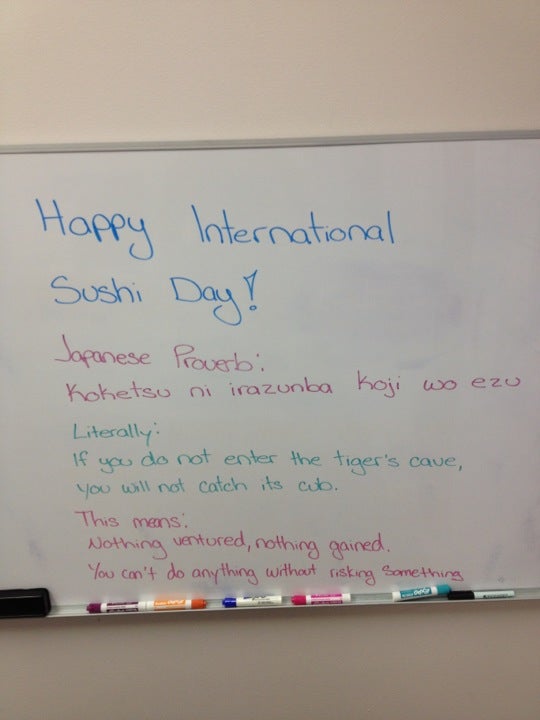 Happy International
Sushi Day!
Japanese Proverb:
Koketsu ni irazunba koji wo ezu
Literally:
If you do not enter the tiger's cave,
you will not catch its cub.
This means:
Nothing ventured, nothing gained.
You can't do anything without risking something